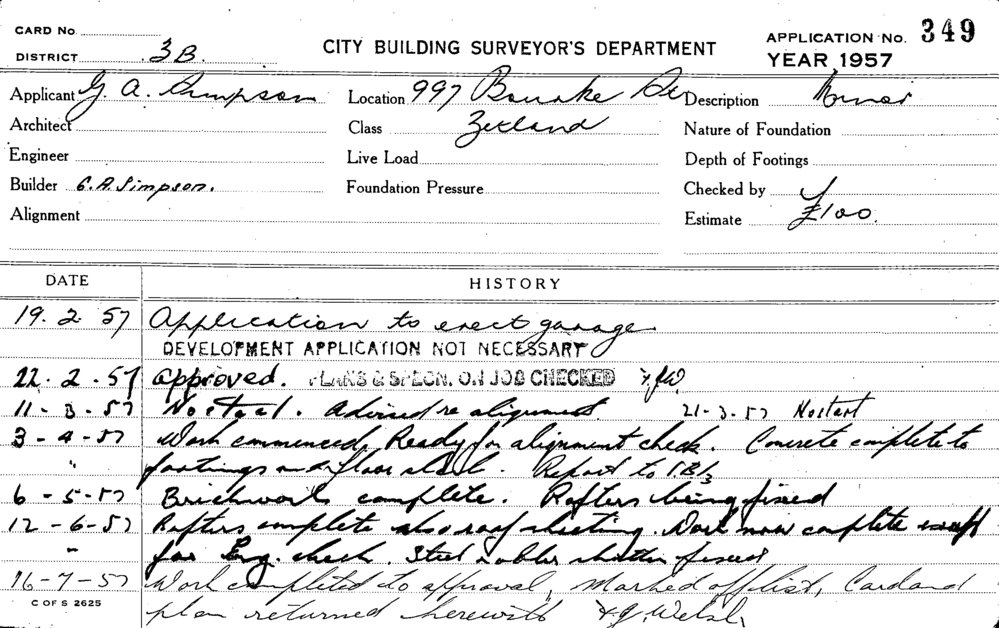 CARD No.
DISTRICT 3B.
CITY BUILDING SURVEYOR'S DEPARTMENT
APPLICATION No. 349
YEAR 1957
Applicant G. A. Simpson Location 997 Bourke St Description Minor
Architect Class Zetland Nature of Foundation
Engineer Live Load Depth of Footings
Builder G. A. Simpson. Foundation Pressure Checked by
Alignment Estimate £100.
DATE HISTORY
19. 2. 57 Application to erect garage
DEVELOPMENT APPLICATION NOT NECESSARY
22. 2. 57 approved. PLANS & SPECN. ON JOB CHECKED
11 - 3 - 57 No start. Advised re alignment 21-3-57 No start
3 - 4 - 57 Work commenced, Ready for alignment check. Concrete complete to
" footings and floor slab. Report to
6 - 5 - 57 Brickwork complete. Rafters being fixed
12 - 6 - 57 Rafters complete also roof sheeting. Work now complete except
" for Eng. check. Steel roller shutter fixed
16 - 7 - 57 Work completed to approval, marked off list, Card and
C OF S 2625
plan returned herewith